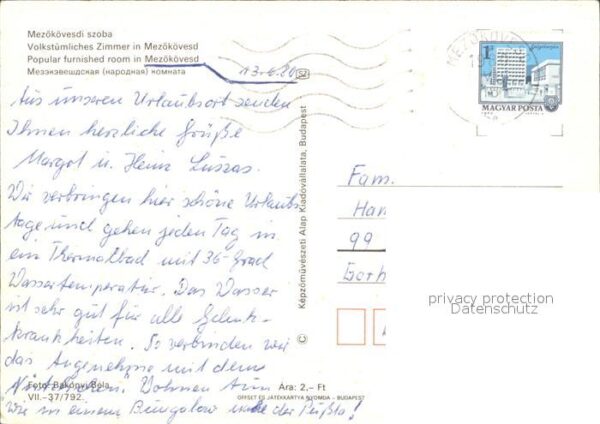 Mezőkövesdi szoba
Volkstümliches Zimmer in Mezőkövesd
Popular furnished room in Mezőkövesd
Мезэкэвешдская (народная) комната
13.6.80
Aus unseren Urlaubsort senden
Ihnen herzliche Grüße
Margot u. Heinz
Wir verbringen hier schöne Urlaubs
tage und gehen jeden Tag in
ein Thermalbad mit 36-Grad
Wassertemperatur. Das Wasser
ist sehr gut für alle Gelenk-
krankheiten. So verbinden wir
das Angenehme mit dem
Nützlichen. Wohnen
wie in einem Bungalow in der Pußta!
Fotó: Bakonyi Béla
VII.-37/792
Ára: 2,- Ft
OFFSET ÉS JÁTÉKKÁRTYA NYOMDA - BUDAPEST
© Képzőművészeti Alap Kiadóvállalata, Budapest
MEZŐKÖVE
1
MAGYAR POSTA
Fam.
Han
99
privacy protection
Datenschutz